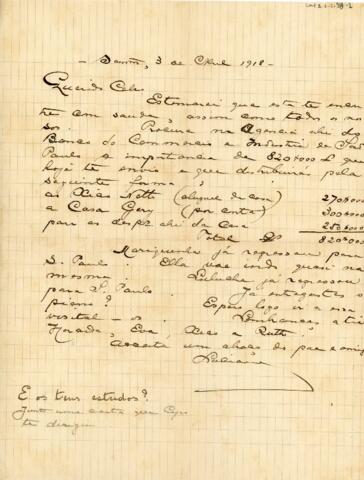 3 de Abril 1918 -
Querido
Estimarei que esta te encon
tre com saude, assim como todos os nos
sos. Procura na Agencia ahi do
Banco do Commercio e Industria de São
Paulo a importancia de 820$000 que
hoje te envio e que distribuiras pela
seguinte forma:
ao (aluguel de casa) 270$000
a Casa (por conta) 300$000
para as despz ahi da Casa 250$000
Total 820$000
já regressou para
S. Paulo. Ella vae indo quasi na
mesma. já regressou
para S. Paulo. Já entregastes o
piano? Espero logo ir a essa
visital-os. Lembranças a ti
Eva, e Ruth
Acceita um abraço do pae e amigo
E os teus estudos?
Junto uma carta que
te